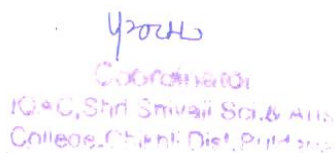 Coordinator
IQAC, Shri Shivaji Sci. & Arts
College, Chikhli Dist.